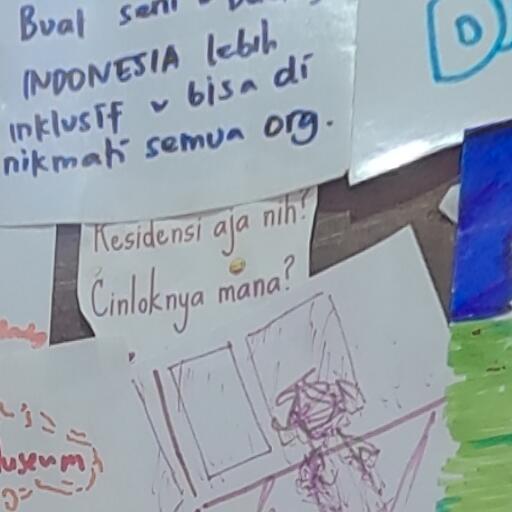 Buat seni
INDONESIA lebih
inklusif & bisa di
nikmati semua org.
D
Residensi aja nih?
Cinloknya mana?
museum